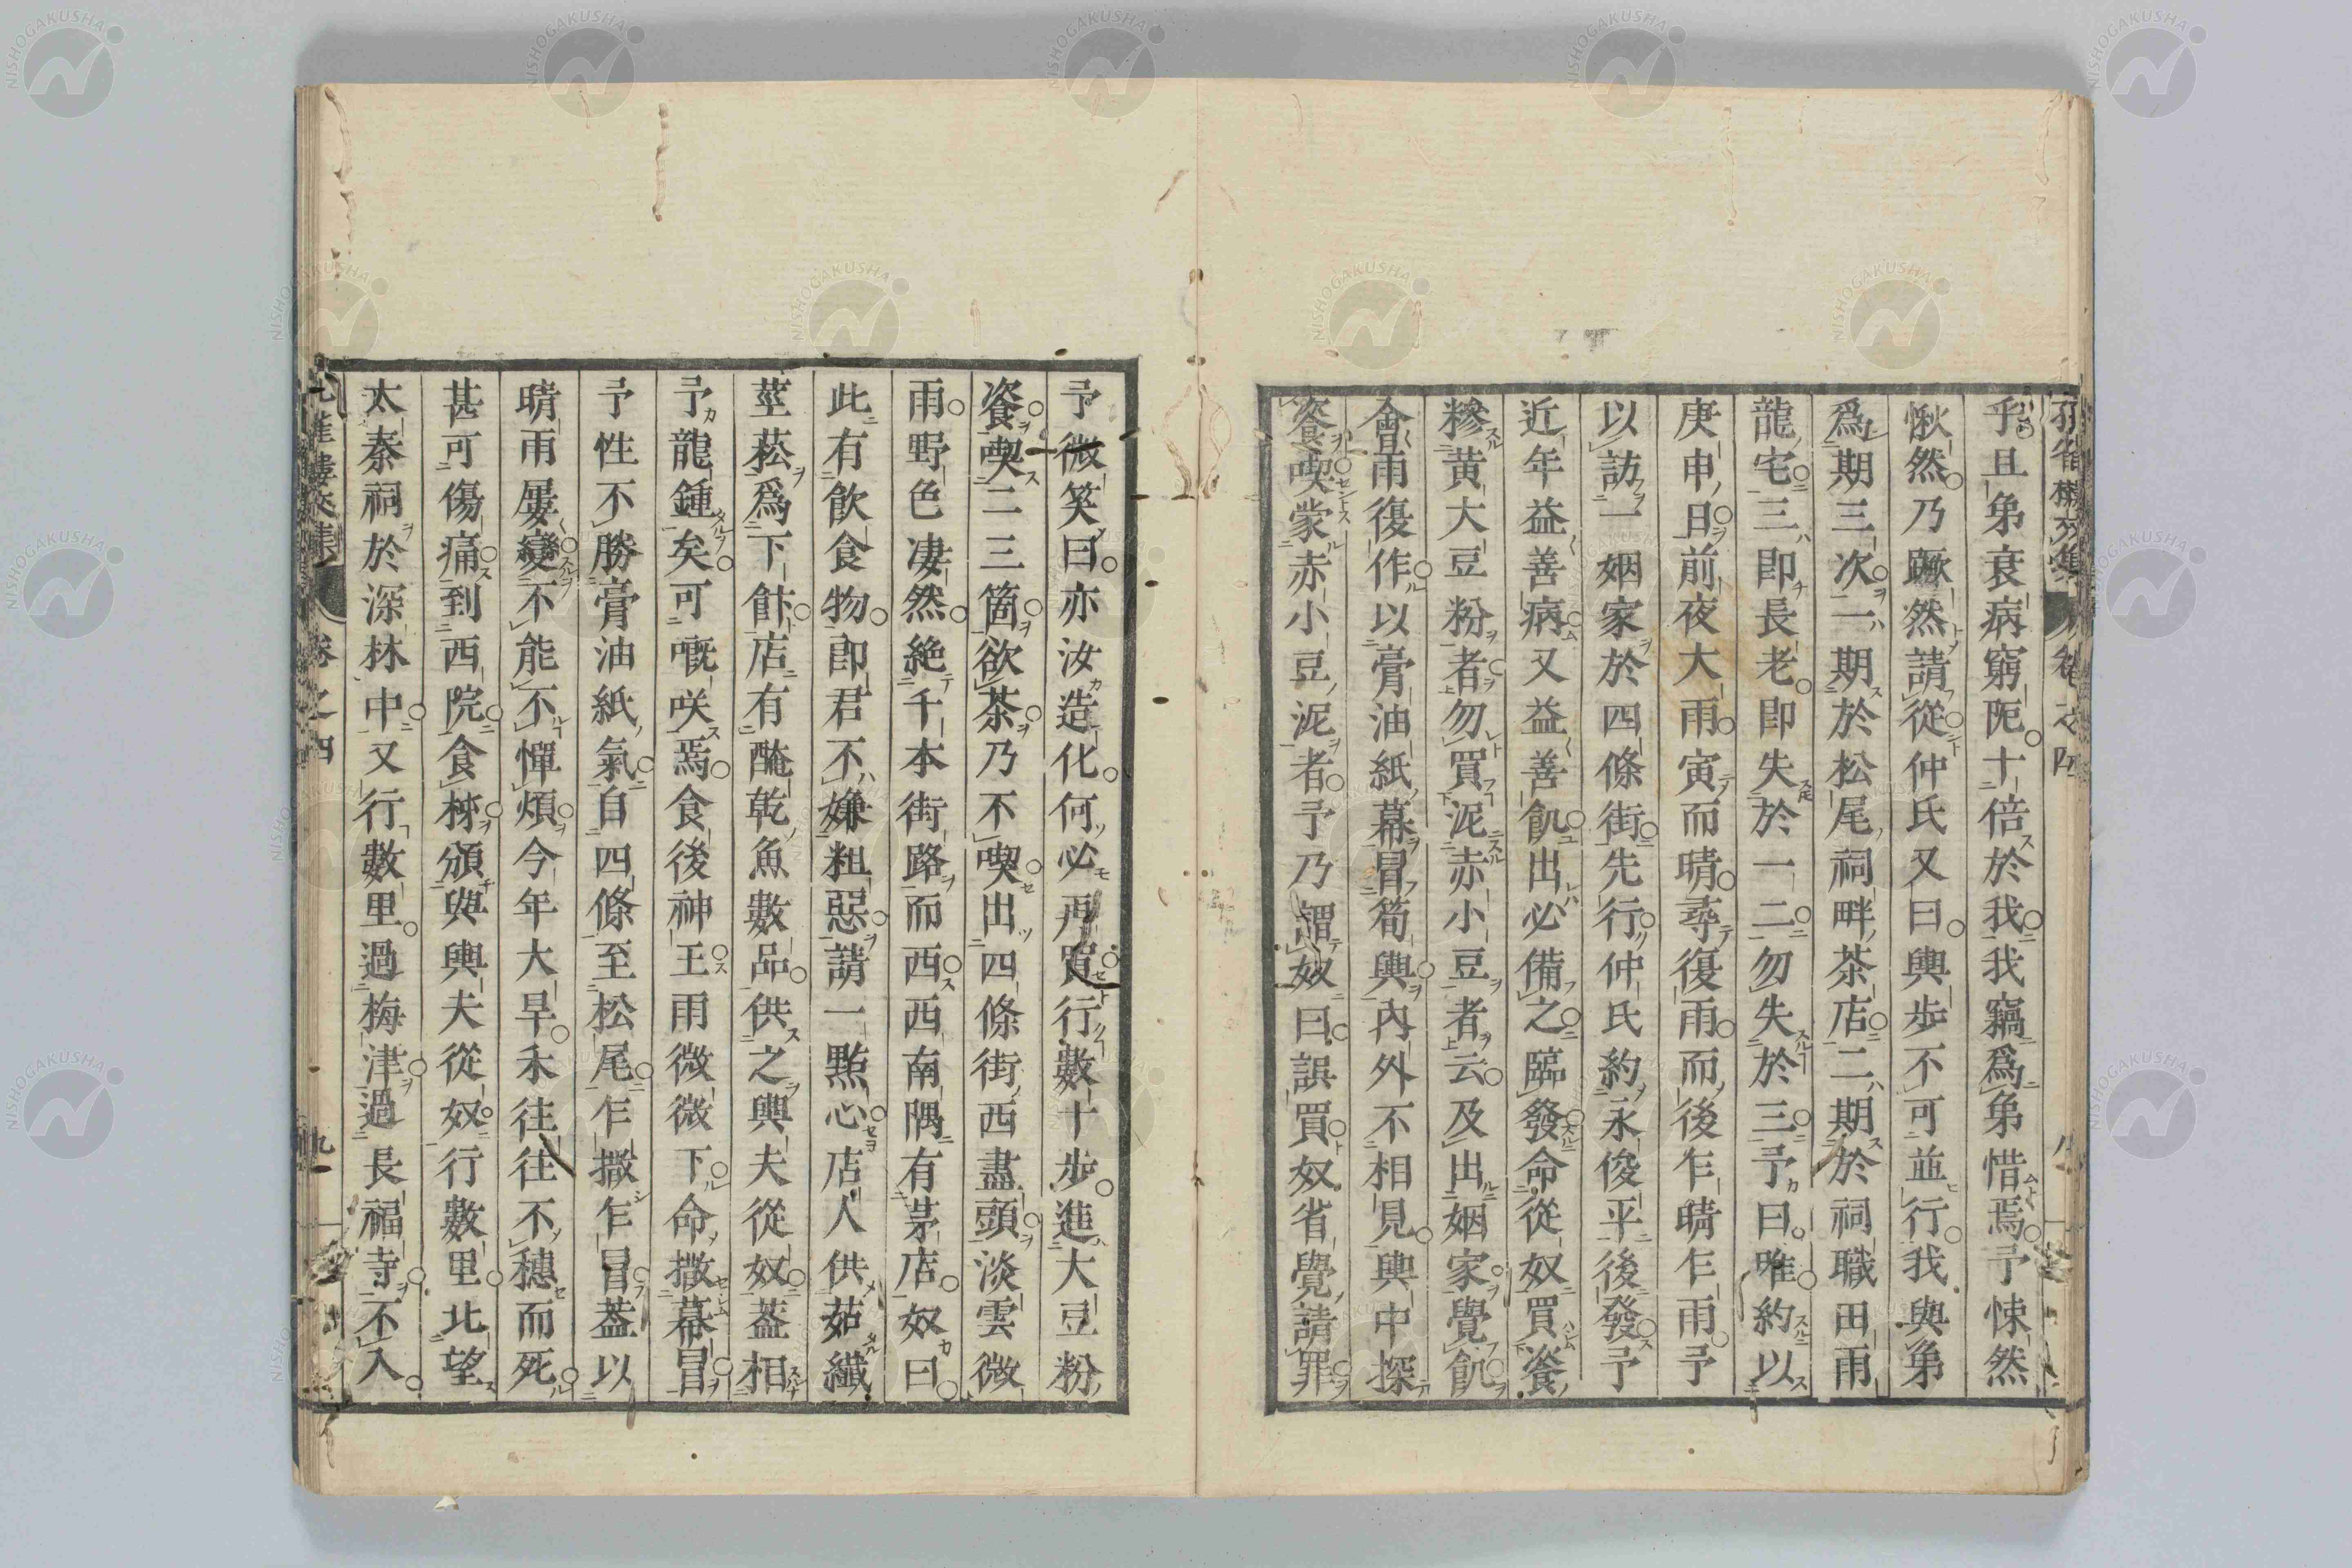 乎且弟衰病窮阨十倍於我我竊爲弟惜焉予悚然
愀然乃蹶然請從仲氏又曰輿歩不可並行我與弟
爲期三次一期於松尾祠畔茶店二期於祠職田雨
龍宅三即長老即失於一二勿失於三予曰唯約以
庚申日前夜大雨寅而晴尋復雨而後乍晴乍雨予
以訪一姻家於四條街先行仲氏約永俊平後發予
近年益善病又益善飢出必備之臨發命從奴買餈
糝黄大豆粉者勿買泥赤小豆者云及出姻家覺飢
會雨復作以膏油紙幕冒筍輿内外不相見輿中探
餈喫蒙赤小豆泥者予乃謂奴曰誤買奴省覺請罪
予微笑曰亦汝造化何必再買行數十歩進大豆粉
餈喫二三箇欲茶乃不喫出四條街西盡頭淡雲微
雨野色凄然絶千本街路而西西南隅有茅店奴曰
此有飮食物即君不嫌粗惡請一㸃心店人供茹纖
莖菘爲下飰店有醃乾魚數品供之輿夫從奴葢相
予龍鍾矣可嘅咲焉食後神王雨微微下命撒幕冒
予性不勝膏油紙氣自四條至松尾乍撒乍冒葢以
晴雨屢變不能不憚煩今年大旱禾往往不穗而死
甚可傷痛到西院食𥹸頒與輿夫從奴行數里北望
太秦祠於深林中又行數里過梅津過長福寺不入
卷之四
九